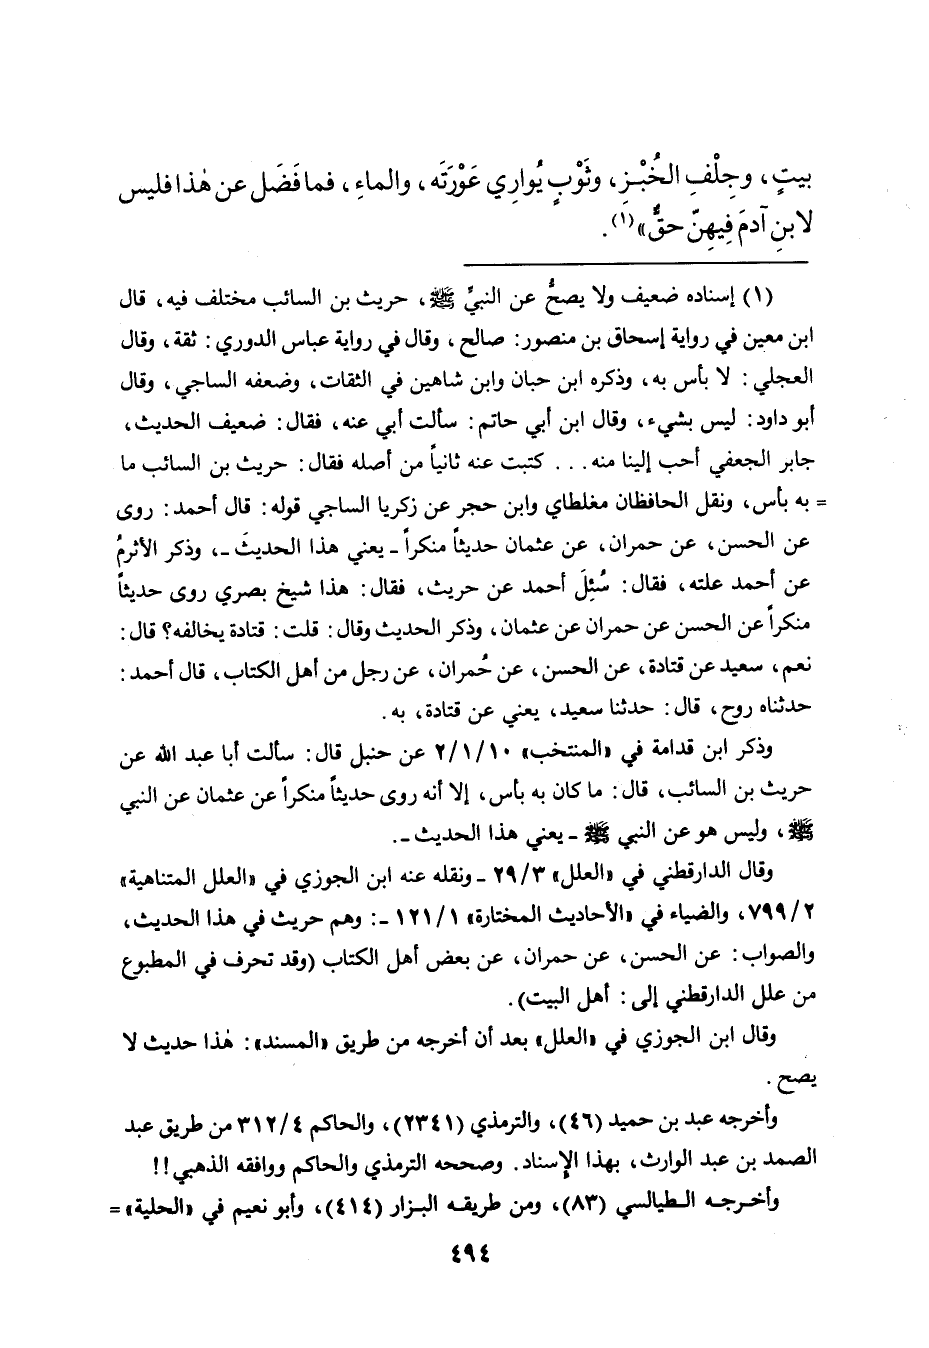 بيتٍ، وجِلْفِ الخُبْزِ، وثَوْبٍ يُوارِي عَوْرَتَه، والماءِ، فما فَضَل عن هٰذا فليس
لابنِ آدمَ فِيهِنّ حقٌّ»(١).
(١) إسناده ضعيف ولا يصحُّ عن النبيِّ ﷺ، حريث بن السائب مختلف فيه، قال
ابن معين في رواية إسحاق بن منصور: صالح، وقال في رواية عباس الدوري: ثقة، وقال
العجلي: لا بأس به، وذكره ابن حبان وابن شاهين في الثقات، وضعفه الساجي، وقال
أبو داود: ليس بشيء، وقال ابن أبي حاتم: سألت أبي عنه، فقال: ضعيف الحديث،
جابر الجعفي أحب إلينا منه... كتبت عنه ثانياً من أصله فقال: حريث بن السائب ما
= به بأس، ونقل الحافظان مغلطاي وابن حجر عن زكريا الساجي قوله: قال أحمد: روى
عن الحسن، عن حمران، عن عثمان حديثاً منكراً ـ يعني هذا الحديثَ ـ، وذكر الأثرمُ
عن أحمد علته، فقال: سُئِلَ أحمد عن حريث، فقال: هذا شيخ بصري روى حديثاً
منكراً عن الحسن عن حمران عن عثمان، وذكر الحديث وقال: قلت: قتادة يخالفه؟ قال:
نعم، سعيد عن قتادة، عن الحسن، عن حُمران، عن رجل من أهل الكتاب، قال أحمد:
حدثناه روح، قال: حدثنا سعيد، يعني عن قتادة، به.
وذكر ابن قدامة في «المنتخب» ٢/١/١٠ عن حنبل قال: سألت أبا عبد الله عن
حريث بن السائب، قال: ما كان به بأس، إلا أنه روى حديثاً منكراً عن عثمان عن النبي
ﷺ، وليس هو عن النبي ﷺ ـ يعني هذا الحديث ـ.
وقال الدارقطني في «العلل» ٢٩/٣ ـ ونقله عنه ابن الجوزي في «العلل المتناهية»
٧٩٩/٢، والضياء في «الأحاديث المختارة» ١٢١/١ ـ: وهم حريث في هذا الحديث،
والصواب: عن الحسن، عن حمران، عن بعض أهل الكتاب (وقد تحرف في المطبوع
من علل الدارقطني إلى: أهل البيت).
وقال ابن الجوزي في «العلل» بعد أن أخرجه من طريق «المسند»: هٰذا حديث لا
يصح.
وأخرجه عبد بن حميد (٤٦)، والترمذي (٢٣٤١)، والحاكم ٣١٢/٤ من طريق عبد
الصمد بن عبد الوارث، بهذا الإسناد. وصححه الترمذي والحاكم ووافقه الذهبي!!
وأخرجه الطيالسي (٨٣)، ومن طريقه البزار (٤١٤)، وأبو نعيم في «الحلية» =
٤٩٤